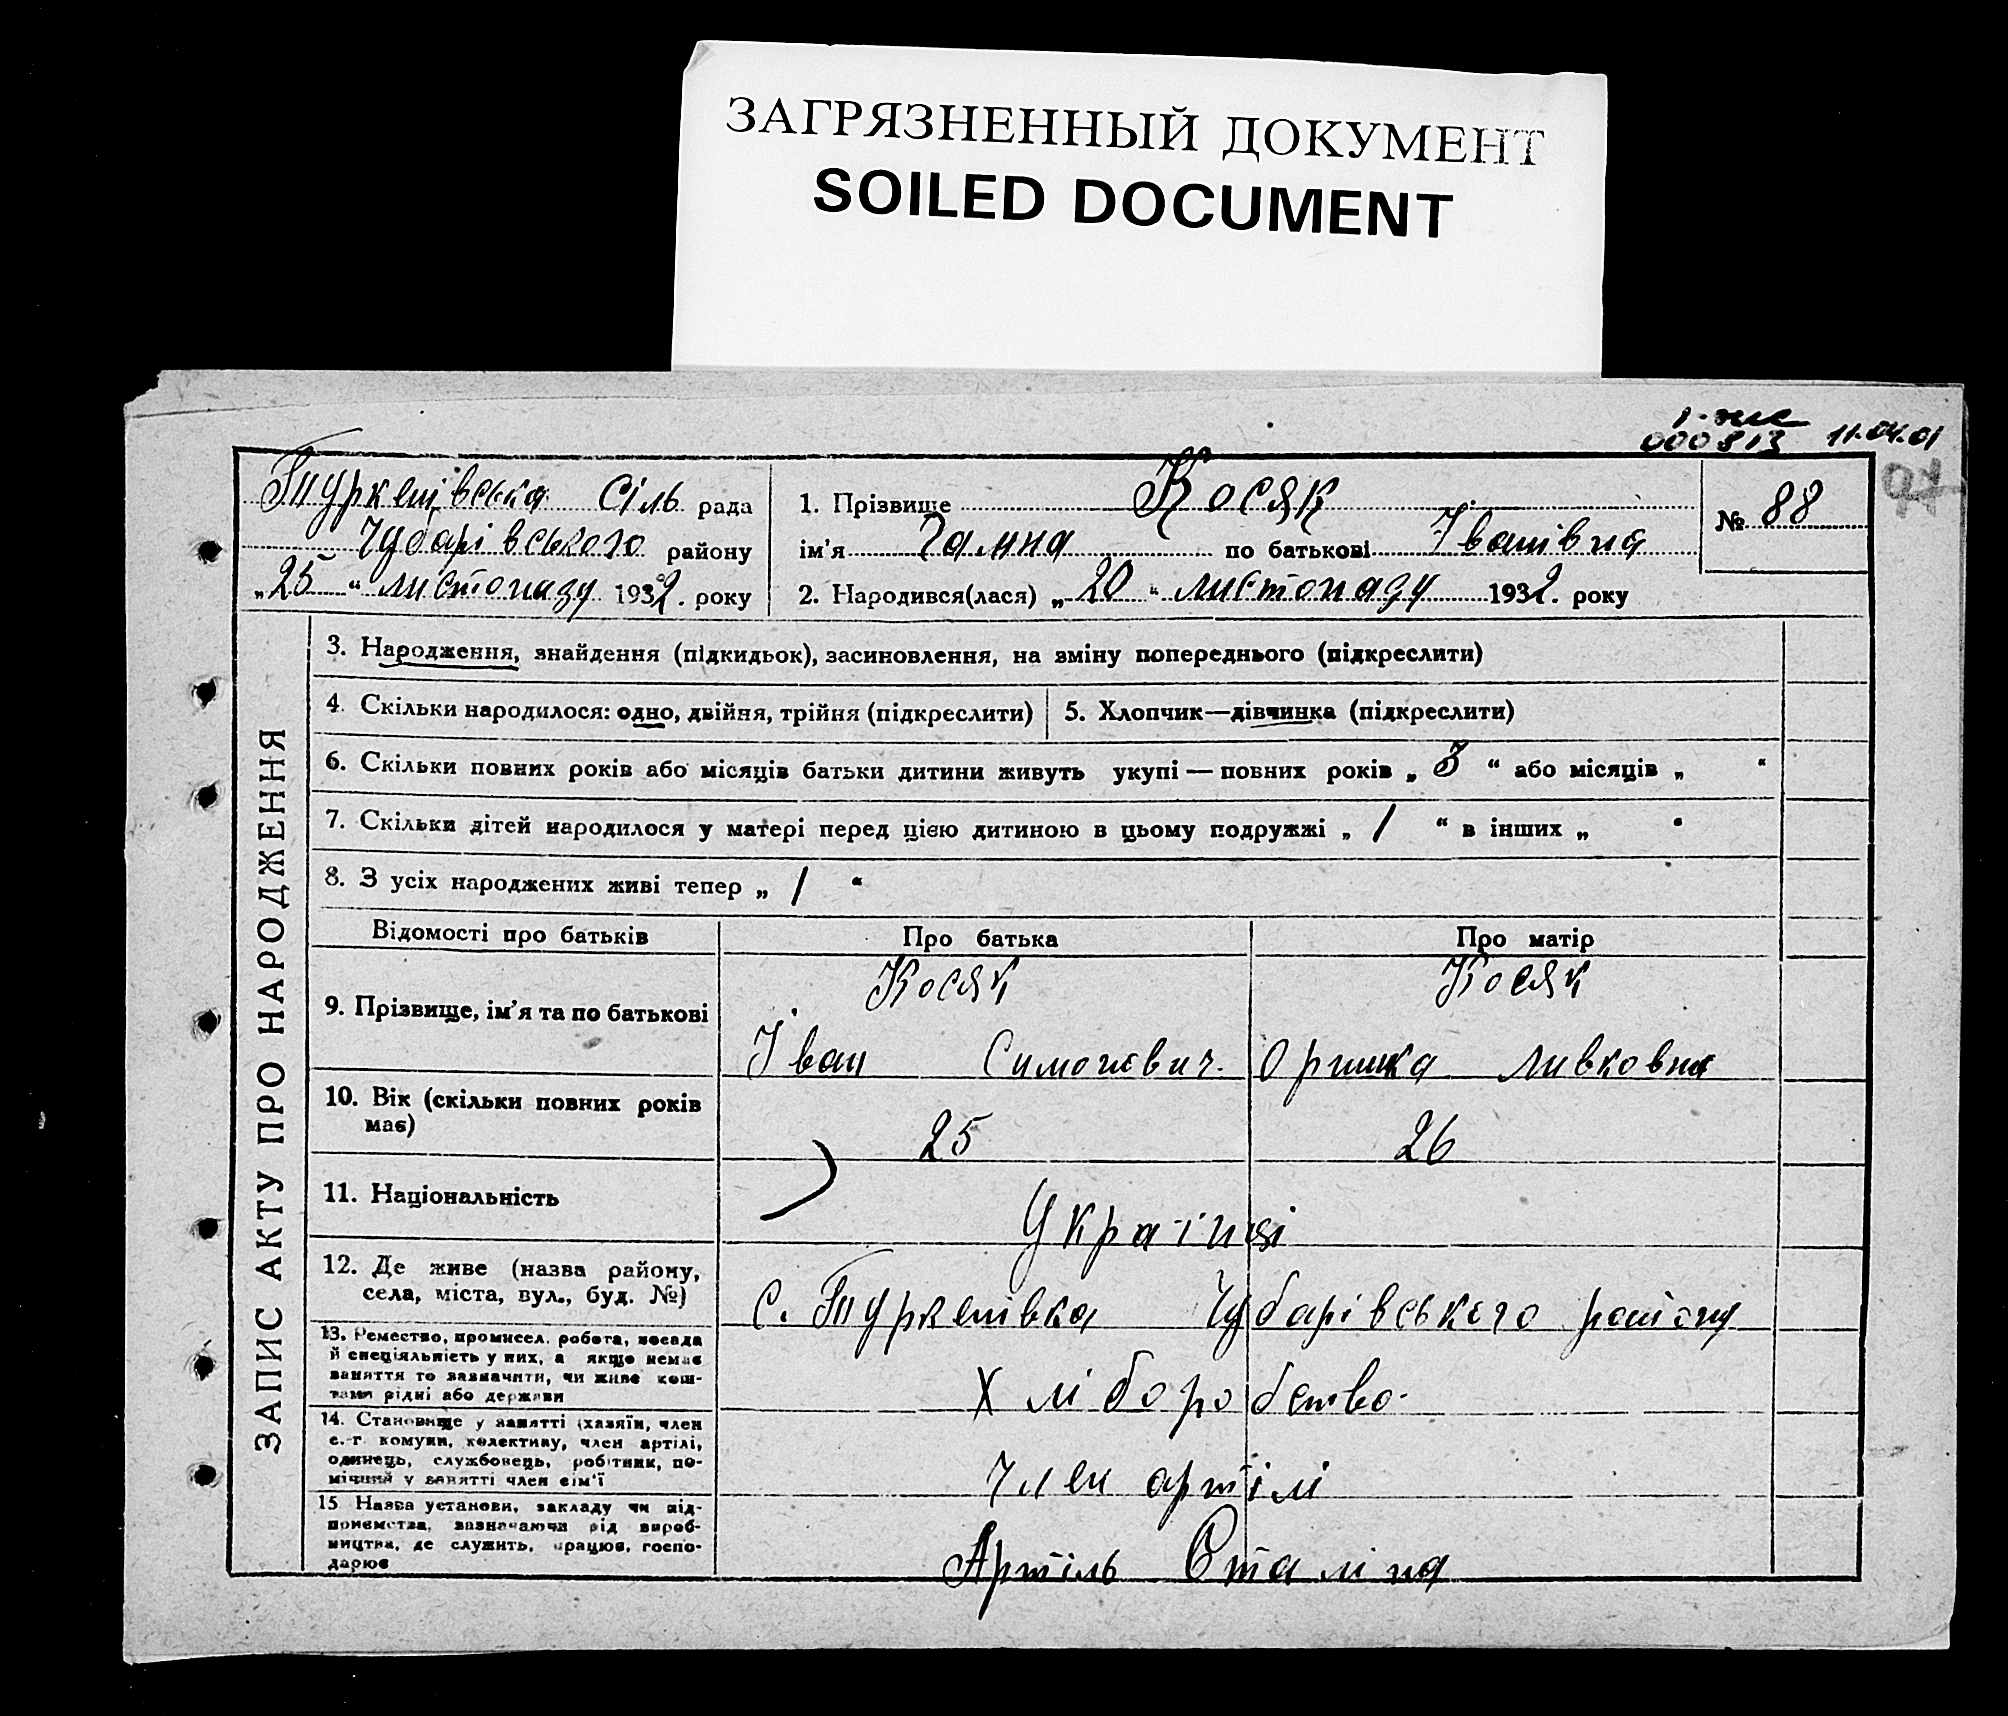 ЗАГРЯЗНЕННЫЙ ДОКУМЕНТ
SOILED DOCUMENT
000813 11.04.01
Туркенівська Сіль рада
Чубарівського району
„25" листопаду 1932. року
1. Прізвище Косяк
ім'я Ганна по батькові Іванівна
2. Народився(лася) „20" листопаду 1932. року
№ 88
ЗАПИС АКТУ ПРО НАРОДЖЕННЯ
3. Народження, знайдення (підкидьок), засиновлення, на зміну попереднього (підкреслити)
4. Скільки народилося: одно, двійня, трійня (підкреслити) 5. Хлопчик—дівчинка (підкреслити)
6. Скільки повних років або місяців батьки дитини живуть укупі — повних років „ 3 " або місяців „ "
7. Скільки дітей народилося у матері перед цією дитиною в цьому подружжі „ 1 " в інших „ "
8. З усіх народжених живі тепер „ 1 "
Відомості про батьків Про батька Про матір
9. Прізвище, ім'я та по батькові
Косяк Косяк
Іван Симонович. Оришка Ливковна
10. Вік (скільки повних років має)
25 26
11. Національність
Українці
12. Де живе (назва району,
села, міста, вул., буд. №)
с. Туркенівка Чубарівського району
13. Ремество, промисел, робота, посада
й спеціяльність у них, а якщо немає
заняття то зазначити, чи живе кош-
тами рідні або держави
Хліборобство.
14. Становище у занятті (хазяїн, член
с.-г. комуни, колективу, член артілі,
одинець, службовець, робітник, по-
мічний у занятті член сім'ї
Член артілі
15 Назва установи, закладу чи під-
приємства, зазначаючи рід вироб-
ництва, де служить, працює, госпо-
дарює
Артіль Сталіна